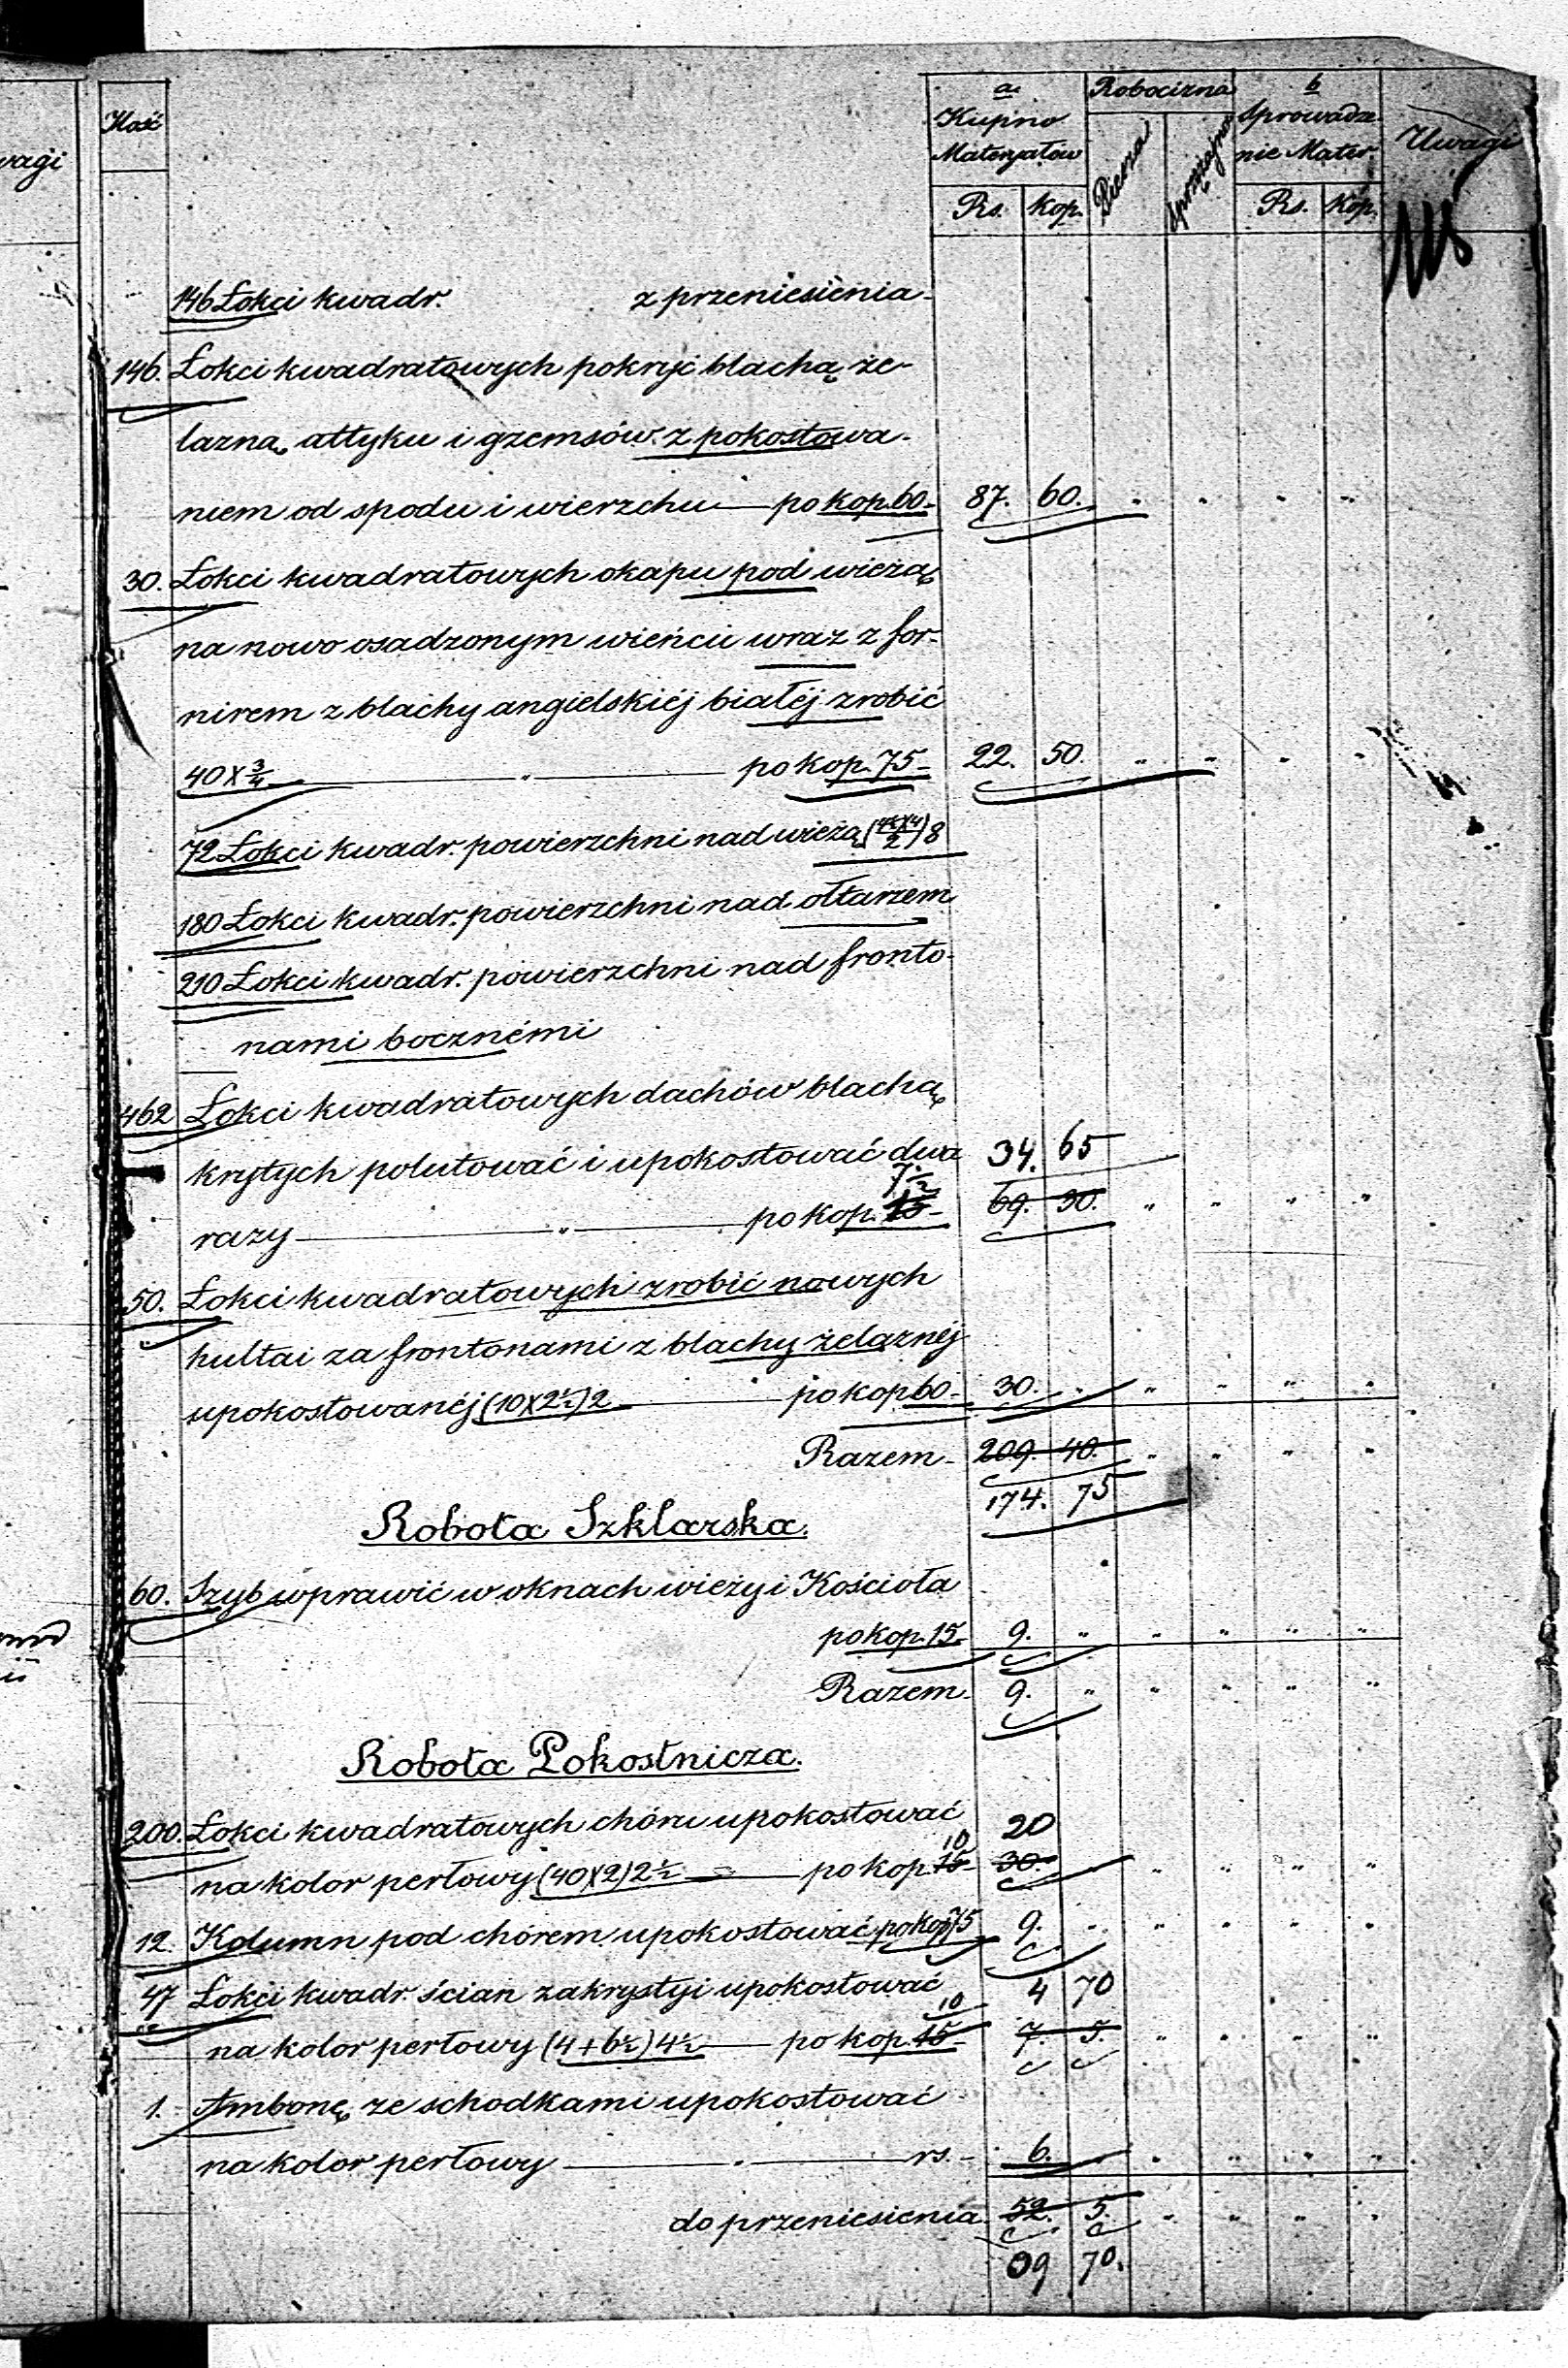 wagi
Ilość
a.
Kupno
Materyałów
Robocizna
b
Sprowadze-
nie Mater.
Uwagi
Piesza
Sprzężajna
Rs. kop. Rs. Kop.
146 Łokci kwadr. z przeniesienia
146. Łokci kwadratowych pokryć blachą że-
lazną, attyku i gzemsów z pokostowa-
niem od spodu i wierzchu — po kop. 60 87. 60. " " " "
30. Łokci kwadratowych okapu pod wieżą
na nowo osadzonym wieńcu wraz z for-
nirem z blachy angielskiéj białéj zrobić
40 x 3/4 — " — po kop. 75 22. 50. " " " "
72 Łokci kwadr. powierzchni nad wieżą 8
180 Łokci kwadr. powierzchni nad ołtarzem
210 Łokci kwadr. powierzchni nad fronto-
nami bocznémi
462 Łokci kwadratowych dachów blachą
krytych polutować i upokostować dwa 34. 65
7 1/2
razy — " — po kop. 15 69. 30. " " " "
50. Łokci kwadratowych zrobić nowych
hultai za frontonami z blachy żelaznéj
upokostowanéj (10 x 2 1/2) 2 — po kop 60 30. " " " " "
Razem 209. 40. " " " "
174. 75
Robota Szklarska.
60. Szyb wprawić w oknach wieży i Kościoła
po kop. 15 9. " " " " "
Razem 9. " " " " "
Robota Pokostnicza.
200. Łokci kwadratowych chóru upokostować 20
10
na kolor perłowy (40 x 2) 2 1/2 = — po kop. 15 30. " " " "
12. Kolumn pod chórem upokostować po kop 75 9. " " " " "
47 Łokci kwadr. ścian zakrystyi upokostować 4 70
10
na kolor perłowy (4 + 6 1/2) 4 1/2 — po kop. 15 7. 5. " " " "
1. Ambonę ze schodkami upokostować
na kolor perłowy — " — rs. 6. " " " "
do przeniesienia 52. 5. " " " "
09 70.